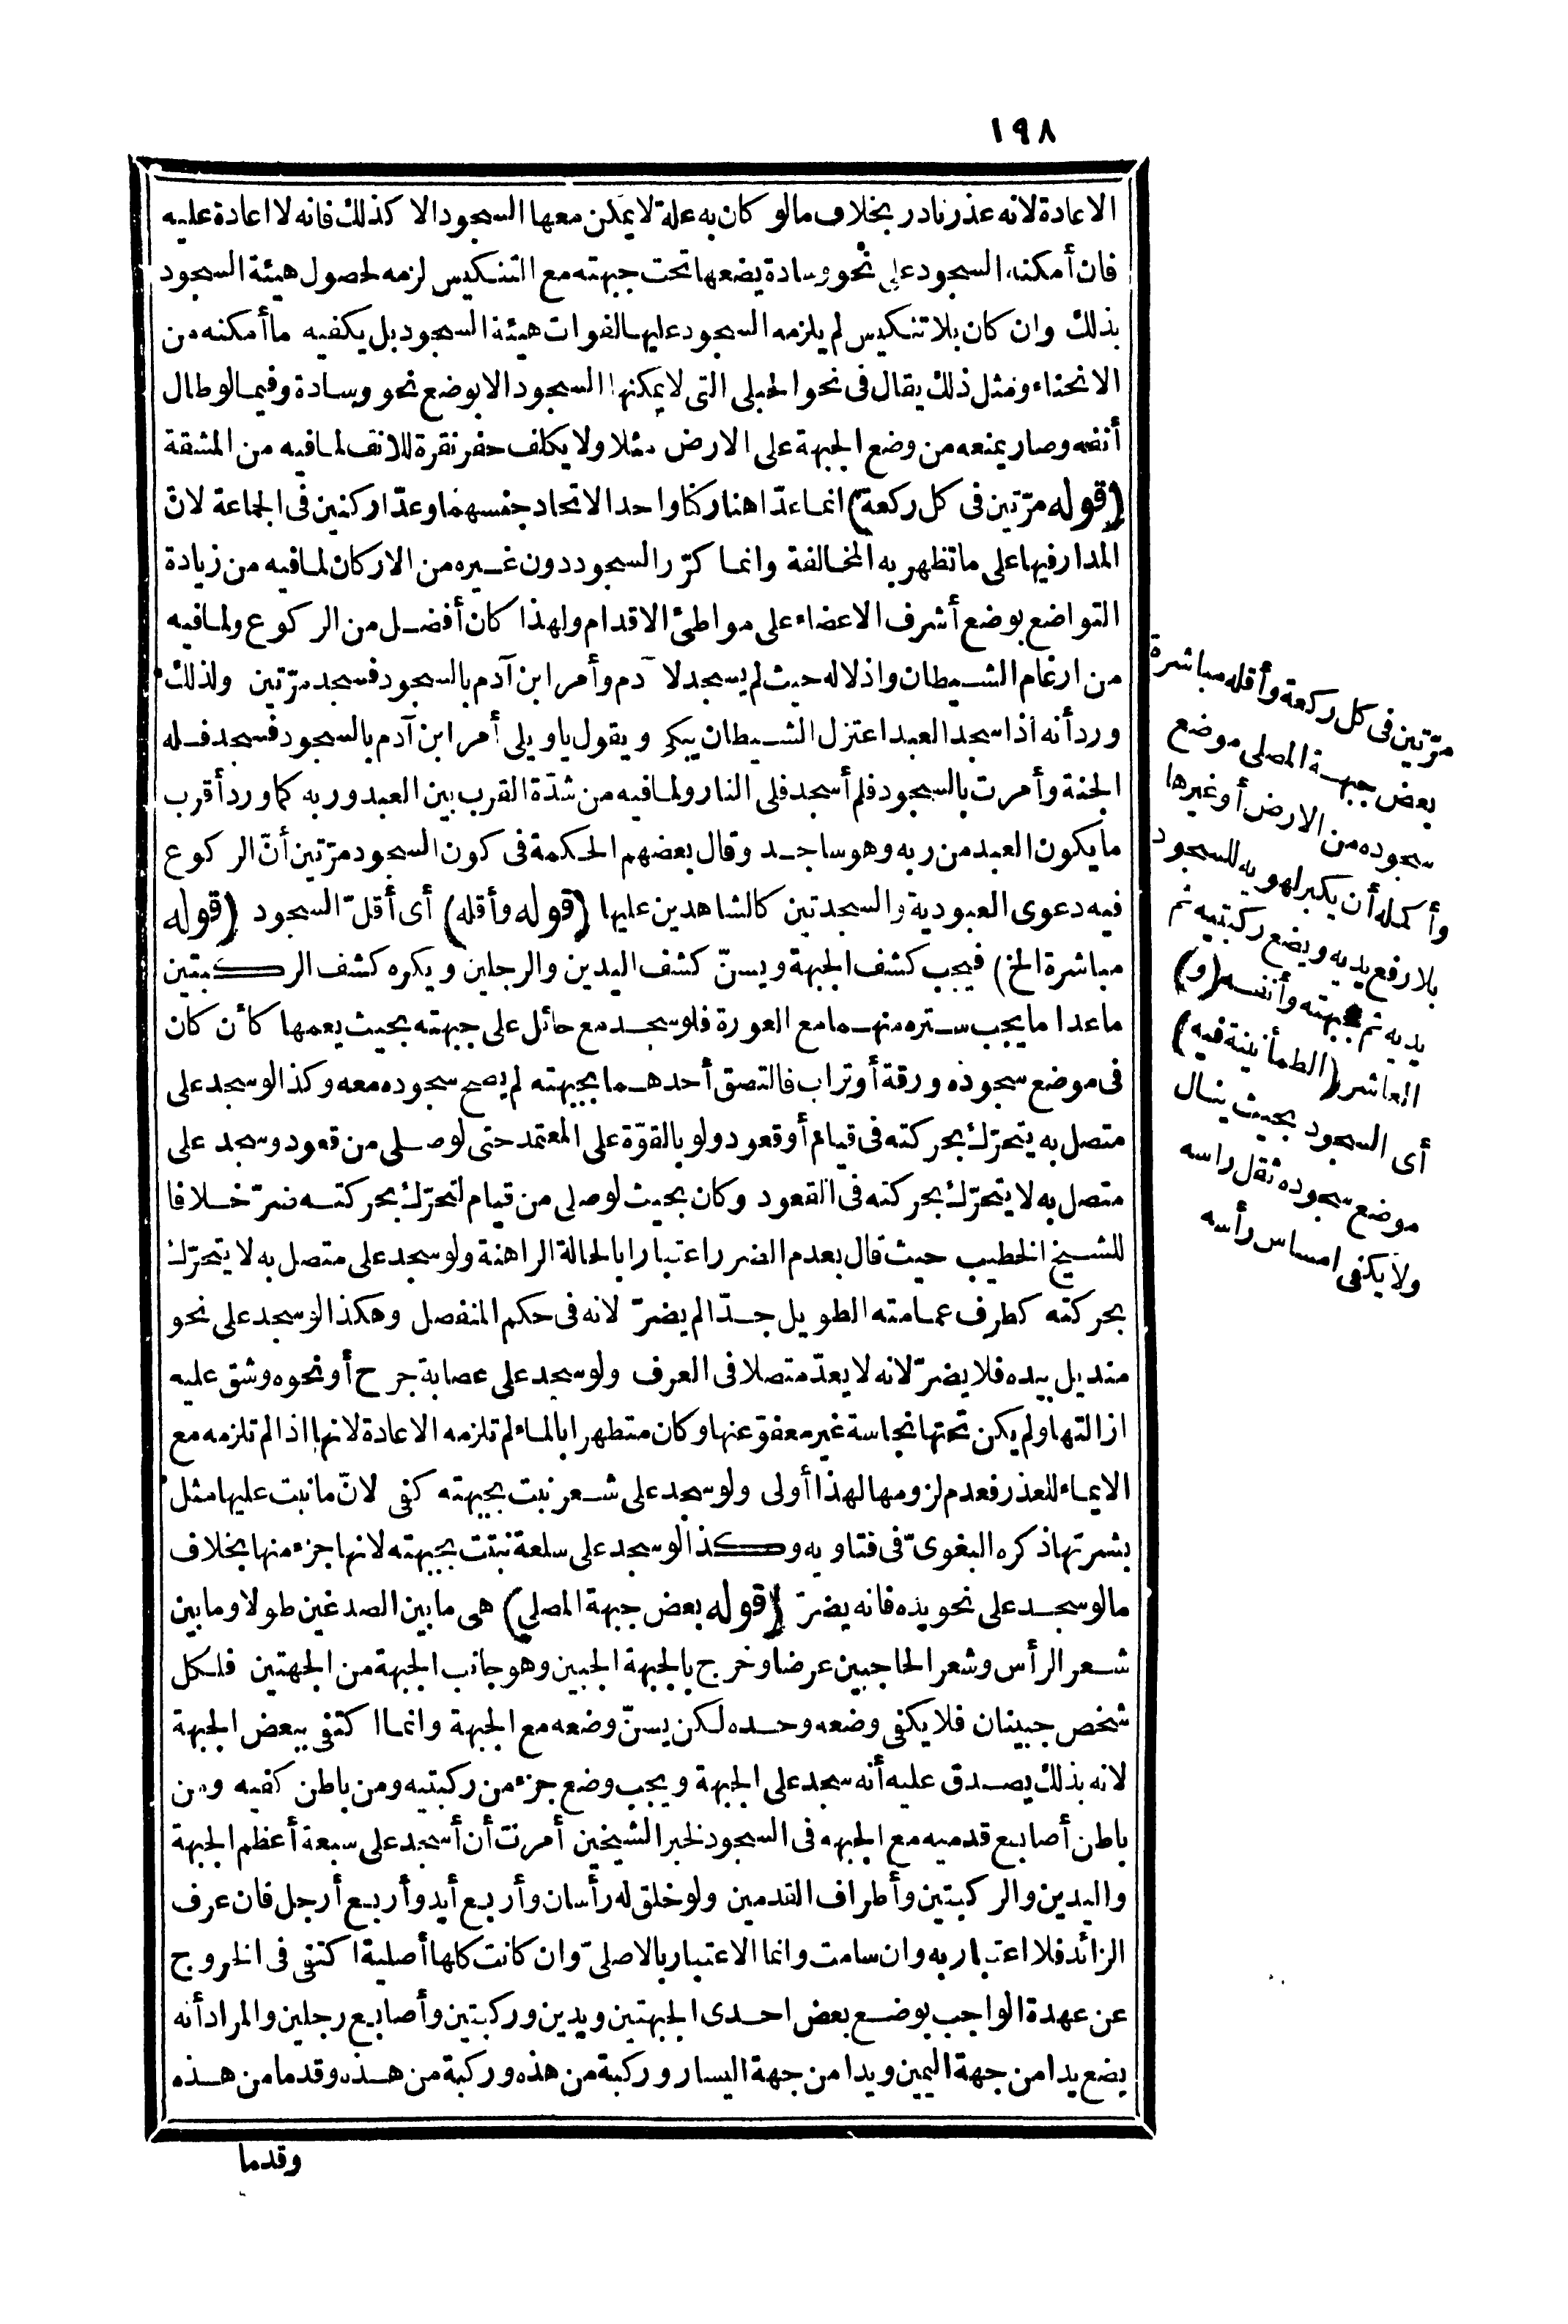 ١٩٨
الاعادة لانه عذر نادر بخلاف مالو كان به علة لا يمكن معها السجود الا كذلك فانه لا اعادة عليه
فان أمكنه السجود على نحو وسادة يضعها تحت جبهته مع التنكيس لزمه لحصول هيئة السجود
بذلك وان كان بلا تنكيس لم يلزمه السجود عليها لفوات هيئة السجود بل يكفيه ما أمكنه من
الانحناء ومثل ذلك يقال فى نحو الحبلى التى لا يمكنها السجود الا بوضع نحو وسادة وفيما لو طال
أنفه وصار يمنعه من وضع الجبهة على الارض مثلا ولا يكلف حفر نقرة للانف لما فيه من المشقة
(قوله مرّتين فى كل ركعة) انما عدّا هنا ركنا واحدا لاتحاد جنسهما وعدّا ركنين فى الجماعة لانّ
المدار فيها على ما تظهر به المخالفة وانما كرّر السجود دون غيره من الاركان لما فيه من زيادة
التواضع بوضع أشرف الاعضاء على مواطئ الاقدام ولهذا كان أفضل من الركوع ولما فيه
من ارغام الشيطان واذلاله حيث لم يسجد لآدم وأمر ابن آدم بالسجود فسجد مرّتين ولذلك
ورد أنه اذا سجد العبد اعتزل الشيطان يبكى ويقول ياويلى أمر ابن آدم بالسجود فسجد فله
الجنة وأمرت بالسجود فلم أسجد فلى النار ولما فيه من شدّة القرب بين العبد وربه كما ورد أقرب
ما يكون العبد من ربه وهو ساجد وقال بعضهم الحكمة فى كون السجود مرّتين أنّ الركوع
فيه دعوى العبودية والسجدتين كالشاهدين عليها (قوله وأقله) أى أقلّ السجود (قوله
مباشرة الخ) فيجب كشف الجبهة ويسنّ كشف اليدين والرجلين ويكره كشف الركبتين
ما عدا ما يجب ستره منهما مع العورة فلو سجد مع حائل على جبهته بحيث يعمها كأن كان
فى موضع سجوده ورقة أو تراب فالتصق أحدهما بجبهته لم يصح سجوده معه وكذا لو سجد على
متصل به يتحرّك بحركته فى قيام أو قعود ولو بالقوّة على المعتمد حتى لو صلى من قعود وسجد على
متصل به لا يتحرّك بحركته فى القعود وكان بحيث لو صلى من قيام لتحرّك بحركته ضرّ خلافا
للشيخ الخطيب حيث قال بعدم الضرر اعتبارا بالحالة الراهنة ولو سجد على متصل به لا يتحرّك
بحركته كطرف عمامته الطويل جدّا لم يضرّ لانه فى حكم المنفصل وهكذا لو سجد على نحو
منديل بيده فلا يضرّ لانه لا يعدّ متصلا فى العرف ولو سجد على عصابة جرح أو نحوه وشق عليه
ازالتها ولم يكن تحتها نجاسة غير معفوّ عنها وكان متطهرا بالماء لم تلزمه الاعادة لانها اذا لم تلزمه مع
الايماء للعذر فعدم لزومها لهذا أولى ولو سجد على شعر نبت بجبهته كفى لانّ ما نبت عليها مثل
بشرتها ذكره البغوىّ فى فتاويه وكذا لو سجد على سلعة نبتت بجبهته لانها جزء منها بخلاف
مالو سجد على نحو يده فانه يضرّ (قوله بعض جبهة المصلي) هى ما بين الصدغين طولا وما بين
شعر الرأس وشعر الحاجبين عرضا وخرج بالجبهة الجبين وهو جانب الجبهة من الجهتين فلكل
شخص جبينان فلا يكفى وضعه وحده لكن يسنّ وضعه مع الجبهة وانما اكتفى ببعض الجبهة
لانه بذلك يصدق عليه أنه سجد على الجبهة ويجب وضع جزء من ركبتيه ومن باطن كفيه ومن
باطن أصابع قدميه مع الجبهه فى السجود لخبر الشيخين أمرت أن أسجد على سبعة أعظم الجبهة
واليدين والركبتين وأطراف القدمين ولو خلق له رأسان وأربع أيد وأربع أرجل فان عرف
الزائد فلا اعتبار به وان سامت وانما الاعتبار بالاصلىّ وان كانت كلها أصلية اكتفى فى الخروج
عن عهدة الواجب بوضع بعض احدى الجبهتين ويدين وركبتين وأصابع رجلين والمراد أنه
يضع يدا من جهة اليمين ويدا من جهة اليسار وركبة من هذه وركبة من هذه وقدما من هذه
وقدما
مرّتين فى كل ركعة وأقله مباشرة
بعض جبهة المصلى موضع
سجوده من الارض أو غيرها
وأكمله أن يكبر لهويه للسجود
بلا رفع يديه ويضع ركبتيه ثم
يديه ثم جبهته وأنفه (و)
العاشر (الطمأنينة فيه)
أى السجود بحيث ينال
موضع سجوده ثقل راسه
ولا يكفى امساس رأسه